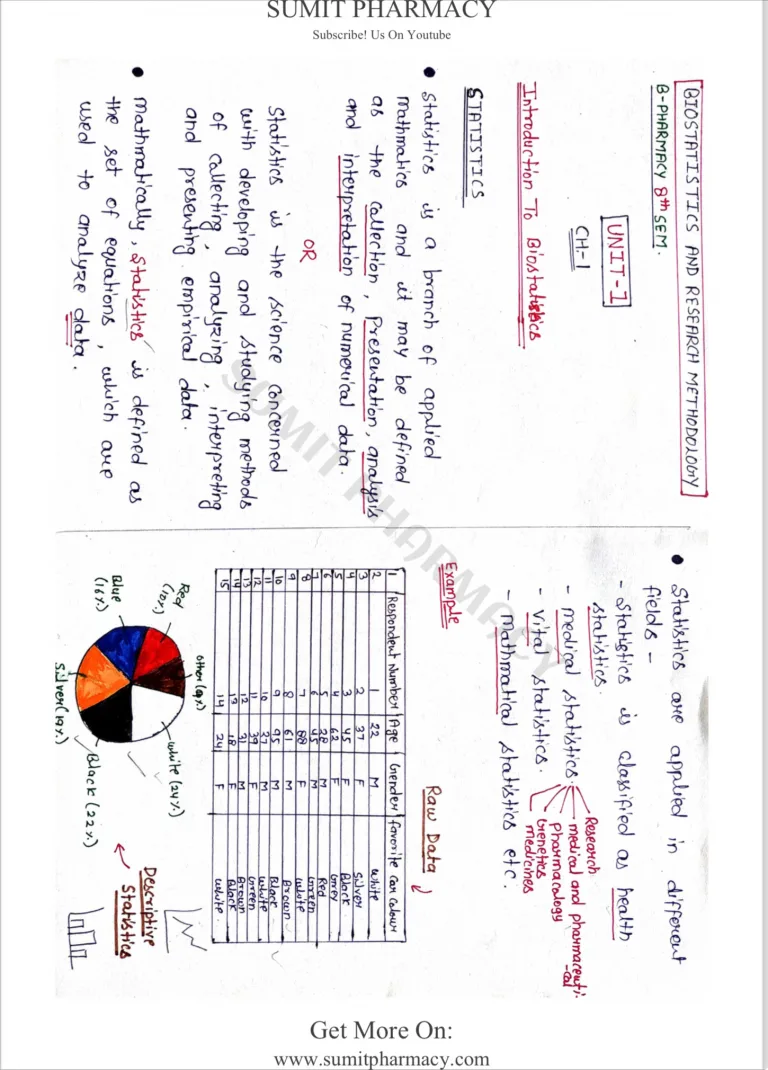 SUMIT PHARMACY
Subscribe! Us On Youtube
BIOSTATISTICS AND RESEARCH METHODOLOGY
B-PHARMACY 8th SEM.
UNIT-1
CH-1
Introduction To Biostatistics
STATISTICS
• Statistics is a branch of applied
mathmatics and it may be defined
as the collection, Presentation, analysis
and interpretation of numerical data.
OR
Statistics is the science concerned
with developing and studying methods
of collecting, analyzing, interpreting
and presenting empirical data.
• mathmatically, statistics is defined as
the set of equations, which are
used to analyze data.
• Statistics are applied in different
fields -
- Statistics is classified as health
statistics.
- medical statistics.
Research
medical and pharmaceuti-
-cal
pharmacology
Genetics
medicines
- vital statistics.
- mathmatical statistics etc.
Example
Raw Data
1 Respondent Number Age Gender favorite Car Colour
2 1 22 M White
3 2 37 F Silver
4 3 45 F Black
5 4 62 F Grey
6 5 28 M Red
7 6 45 M Green
8 7 88 F White
9 8 61 M Brown
10 9 95 M Black
11 10 37 M White
12 11 39 F Green
13 12 31 M Brown
14 13 18 F Black
15 14 24 F White
other (9%)
White (24%)
Black (22%)
Silver (19%)
Blue
(16%)
Red
(10%)
Descriptive
Statistics
SUMIT PHARMACY
Get More On:
www.sumitpharmacy.com